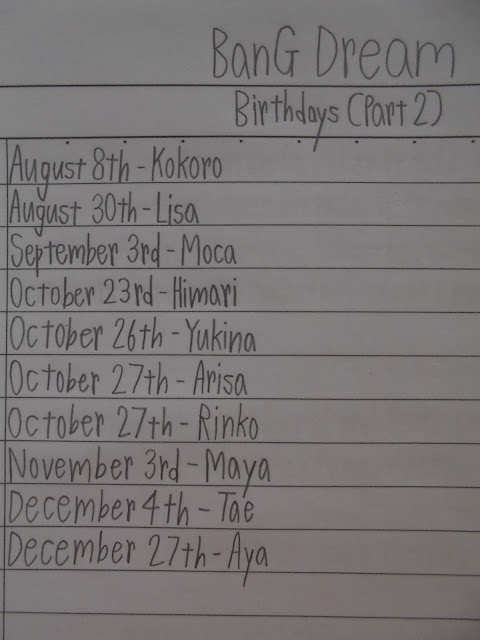 BanG Dream
Birthdays (Part 2)
August 8th - Kokoro
August 30th - Lisa
September 3rd - Moca
October 23rd - Himari
October 26th - Yukina
October 27th - Arisa
October 27th - Rinko
November 3rd - Maya
December 4th - Tae
December 27th - Aya